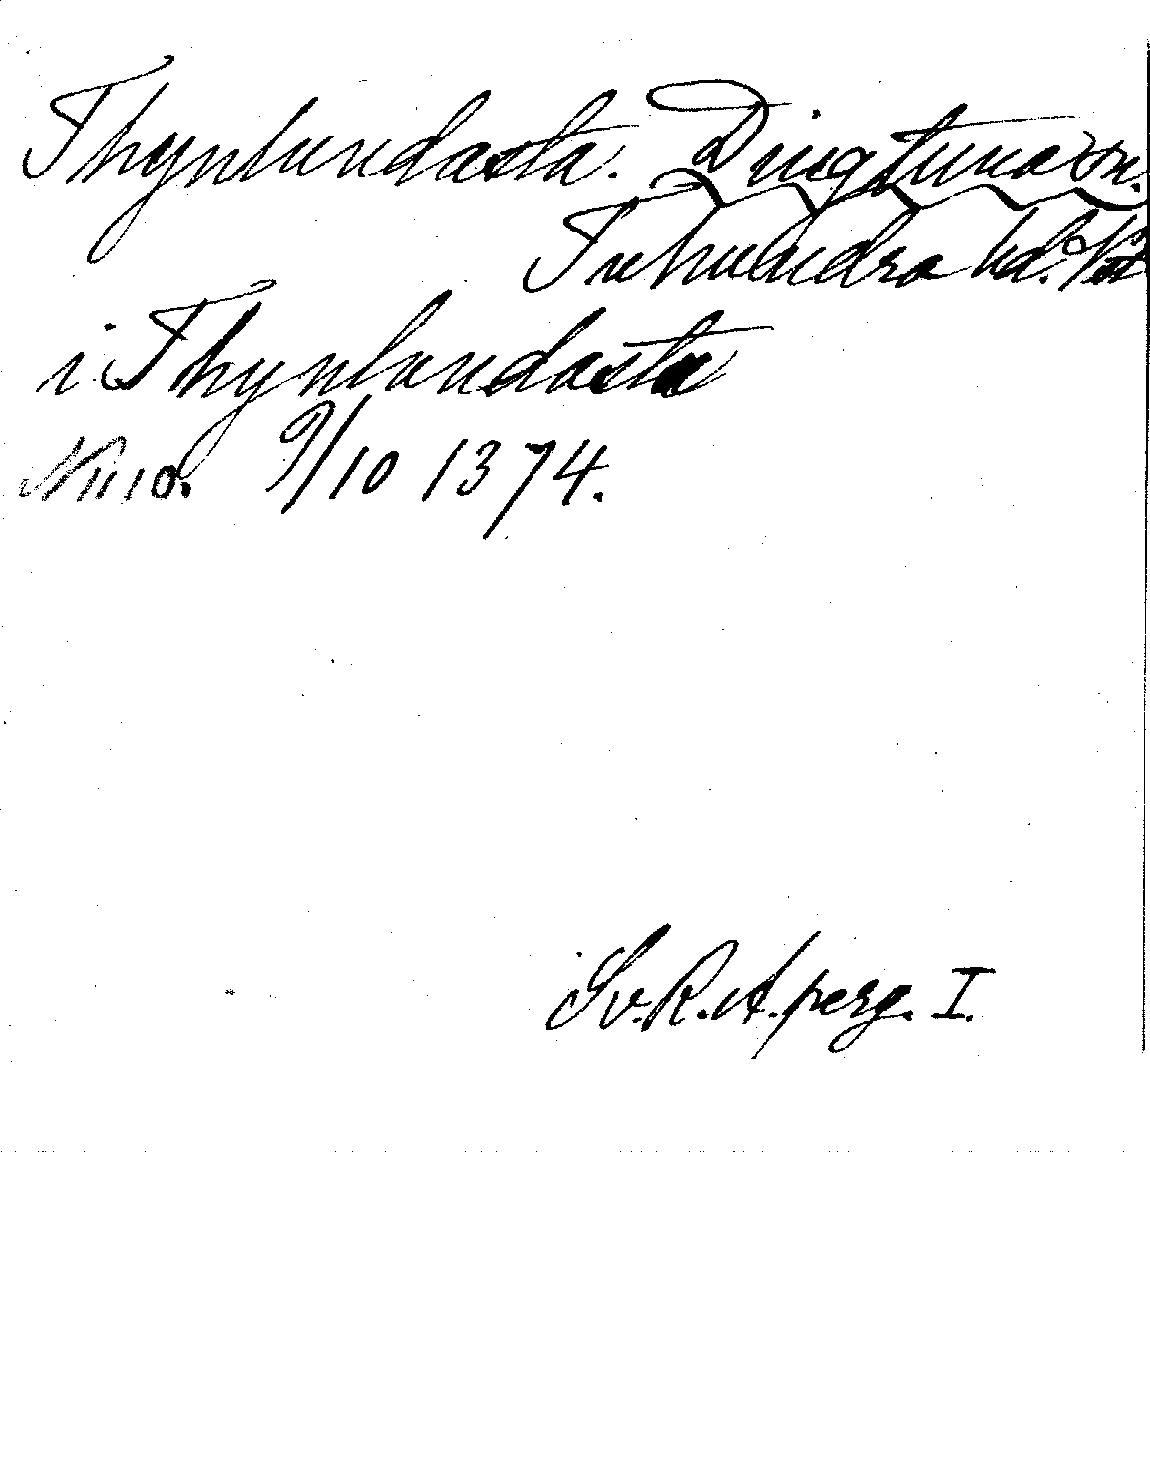 Thynlundasta. Dingtuna sn.
Tuhundra hd. Vst
i Thynlundasta
N:o 1110. 9/10 1374.
Sv. R. A. perg. I.